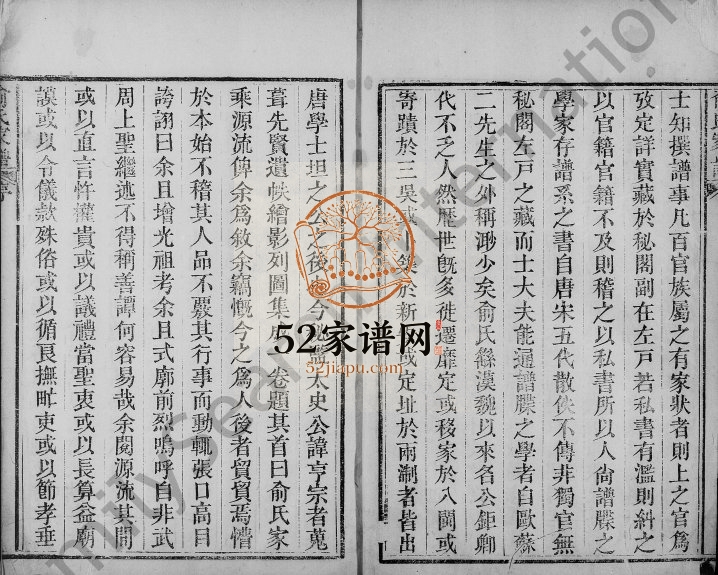 士知撰譜事凡百官族屬之有家狀者則上之官為
攷定詳實藏於秘閣副在左戸若私書有濫則糾之
以官籍官籍不及則稽之以私書所以人尙譜牒之
學家存譜系之書自唐宋五代散佚不傳非獨官無
秘閣左戸之藏而士大夫能通譜牒之學者自歐蘇
二先生之外稱尠少矣俞氏繇漢魏以來名公鉅卿
代不乏人然歷世旣多徙遷靡定或移家於八閩或
寄蹟於三吳 於新 定址於兩淛者皆出
唐學士坦之公之後 今 太史公諱亨宗者蒐
葺先賢遺帙繪影列圖集成 卷題其首曰俞氏家
乘源流俾余為敘余竊慨今之為人後者貿貿焉懵
於本始不稽其人品不覈其行事而動輒張口高目
誇詡曰余且增光祖考余且式廓前烈嗚呼自非武
周上聖繼述不得稱善譚何容易哉余閱源流其間
或以直言忤權貴或以議禮當聖衷或以長算益廟
謨或以令儀款殊俗或以循良撫甿吏或以節孝垂
52家谱网
52jiapu.com